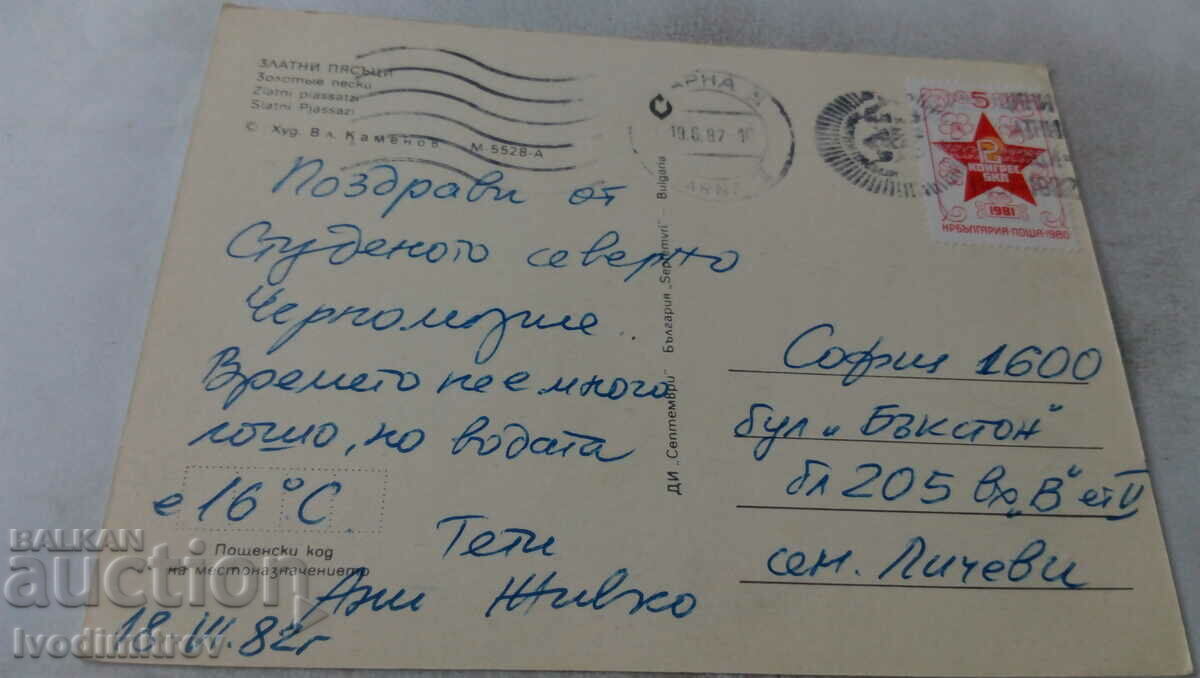 ЗЛАТНИ ПЯСЪЦИ
Золотые пески
Zlatni piassatzi
Slatni Pjassazi
© Худ. Вл. Каменов М-5528-А
Поздрави от
Студеното северно
Черноморие..
Времето не е много
лошо, но водата
е 16°C.
Тети
Ани Живко
18.III.82г
Пощенски код
на местоназначението
ДИ „Септември" България „Septemvri" — Bulgaria
ВАРНА
19.6.82
5
2
КОНГРЕС
БКП
1981
НР БЪЛГАРИЯ·ПОЩА·1980
София 1600
бул „Бъкстон"
бл 205 вх „В" ет V
сем. Личеви
BALKAN
auction
Ivodimitrov